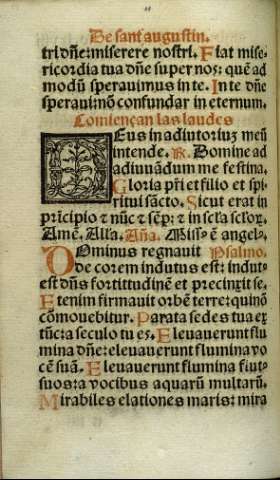 De sant augustin.
tri dñe: miserere nostri. Fiat mise-
ricordia tua dñe super nos: quẽ ad
modũ sperauimus in te. In te dñe
speraui: nõ confundar in eternum.
Comiençan las laudes
DEus in adiutoriuz meũ
intende. R. Domine ad
adiuuãdum me festina.
Gloria pr̃i et filio et spi-
ritui sãcto. Sicut erat in
prĩcipio ⁊ nũc ⁊ sẽp̃: ⁊ in sc̃la sc̃lor̃.
Amẽ. Alla. Aña. Miss⁹ ẽ angel⁹.
DOminus regnauit Psalmo.
decorem indutus est: indut⁹
est dñs fortitudinẽ et precinxit se.
Etenim firmauit orbẽ terre: qui nõ
cõmouebitur. Parata sedes tua ex
tũc: a seculo tu es. Eleuauerunt flu
mina dñe: eleuauerunt flumina vo
cẽ suã. Eleuauerunt flumina fluc-
tus suos: a vocibus aquarũ multarũ.
Mirabiles elationes maris: mira